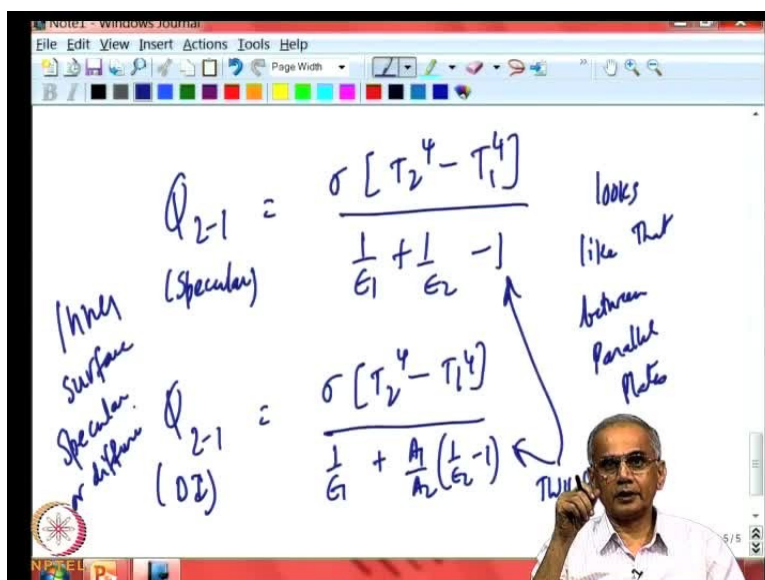 Note1 - Windows Journal
File Edit View Insert Actions Tools Help
Page Width
B I
Q2-1 = σ [T2^4 - T1^4]
1/ϵ1 + 1/ϵ2 - 1
(Specular)
looks
like That
between
Parallel
Plates
Inner
surface
specular
or diffuse
Q2-1 = σ [T2^4 - T1^4]
1/ϵ1 + A1/A2 (1/ϵ2 - 1)
5/5
NPTEL